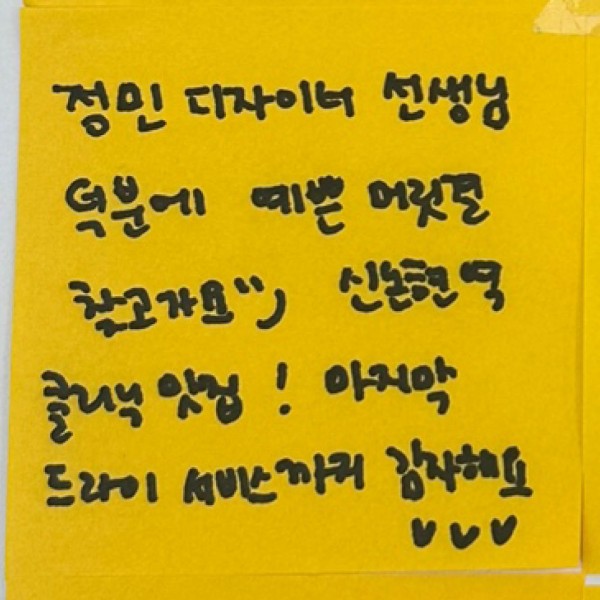 정민 디자이너 선생님
덕분에 예쁜 머릿결
찾고가요^^) 신논현역
클리닉 맛집! 마지막
드라이 서비스까지 감사해요
♥♥♥